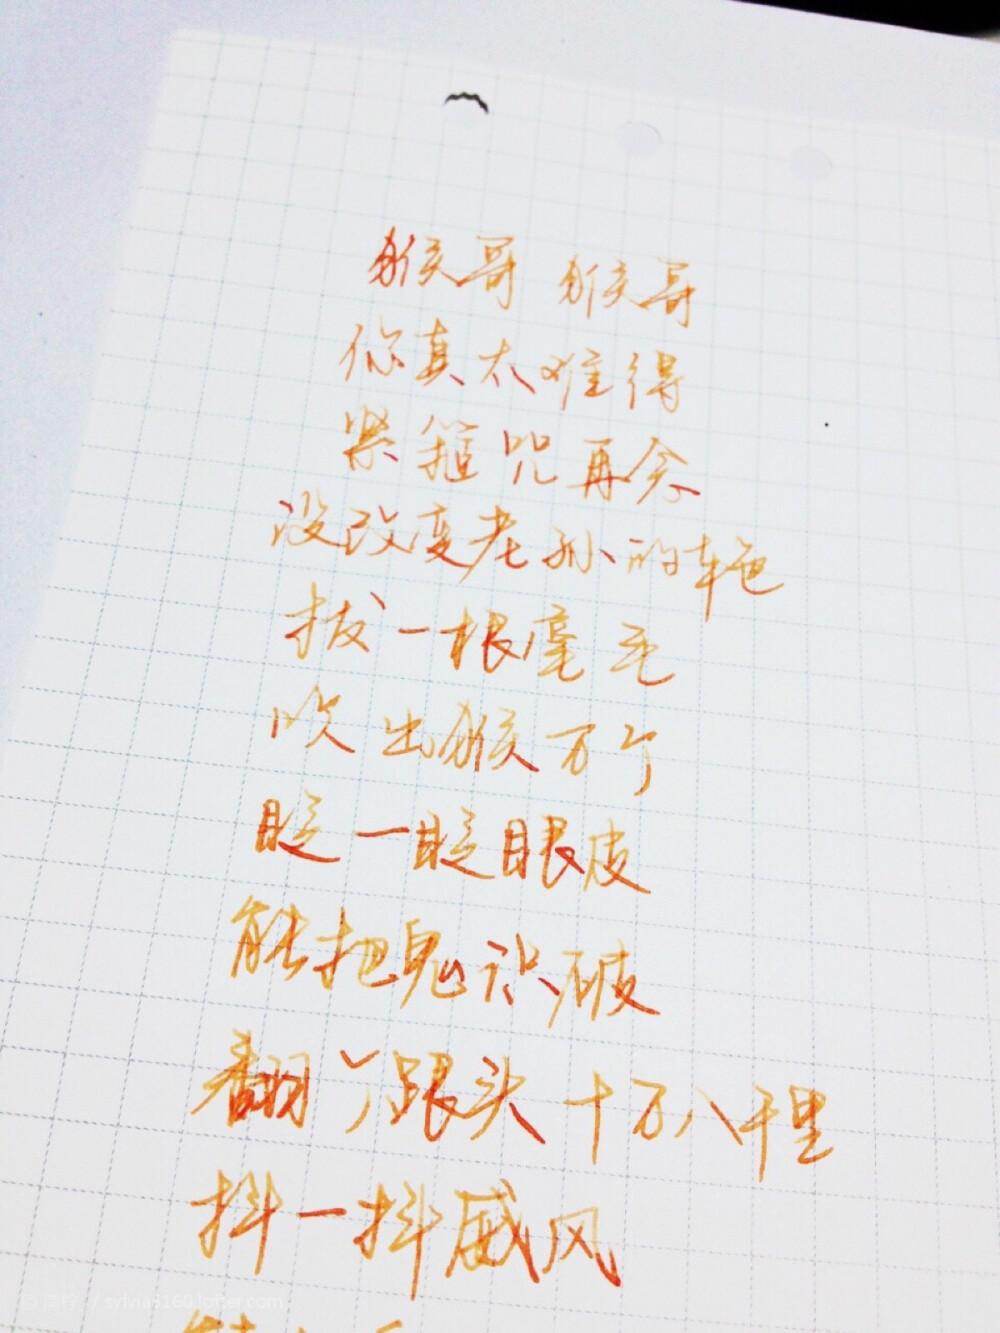 猴哥 猴哥
你真太难得
紧箍咒再念
没改变老孙的本色
拔一根毫毛
吹出猴万个
眨一眨眼皮
能把鬼识破
翻个跟头十万八千里
抖一抖威风
/ sylvia3160.lofter.com